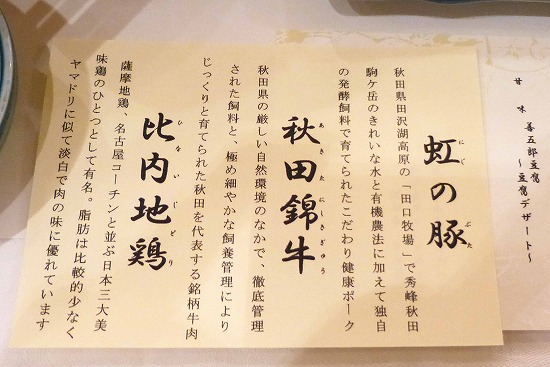 甘味 善五郎豆腐
～豆腐デザート～
虹の豚
にじ ぶた
秋田県田沢湖高原の「田口牧場」で秀峰秋田
駒ケ岳のきれいな水と有機農法に加えて独自
の発酵飼料で育てられたこだわり健康ポーク
秋田錦牛
あきたにしきぎゅう
秋田県の厳しい自然環境のなかで、徹底管理
された飼料と、極め細やかな飼養管理により
じっくりと育てられた秋田を代表する銘柄牛肉
比内地鶏
ひないじどり
薩摩地鶏、名古屋コーチンと並ぶ日本三大美
味鶏のひとつとして有名。脂肪は比較的少なく
ヤマドリに似て淡白で肉の味に優れています